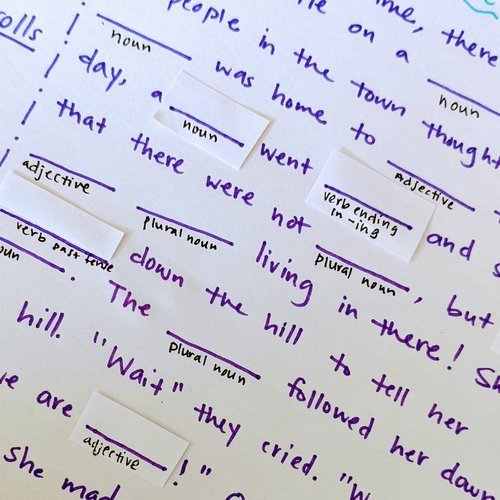 there
on a ____ noun
people in the town thought
noun was home to adjective
day, a noun went verb ending in -ing and
that there were not plural noun, but
adjective plural noun living in there!
verb past tense down the hill to tell her
. The plural noun followed her down
hill. "Wait" they cried.
are adjective!"
she